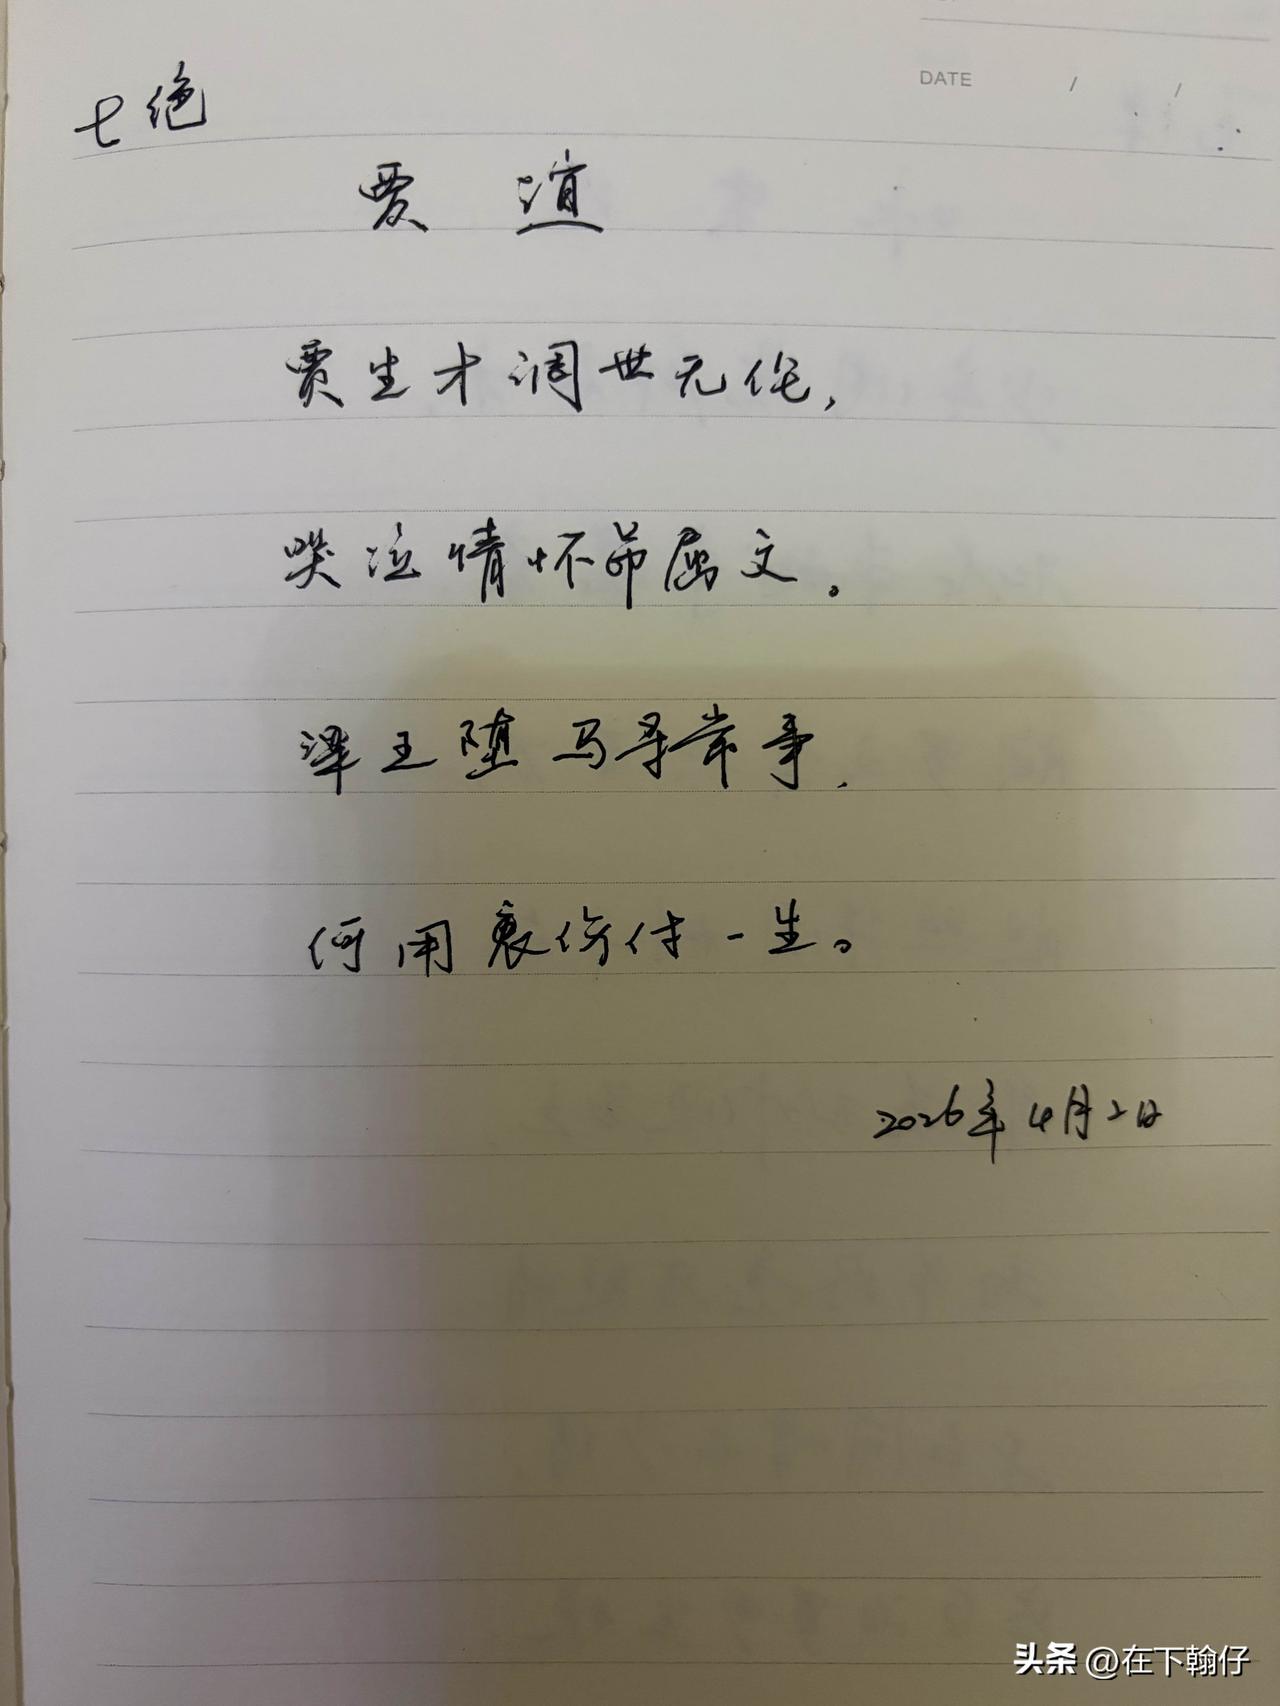 DATE / /
七绝
贾谊
贾生才调世无伦，
哭泣情怀吊屈文。
梁王堕马寻常事，
何用哀伤付一生。
2026年4月2日
头条 @在下翰仔